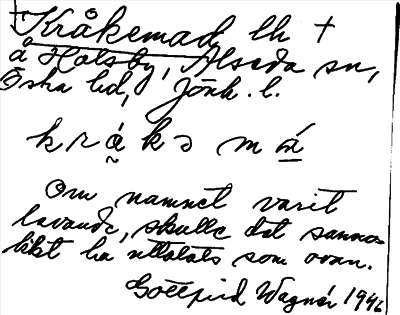 † Kråkemad lh †
å Holsby, Alseda sn,
Östra hd, Jönk. l.
k r å k ə m
Om namnet varit
levande, skulle det sanno-
likt ha uttalats som ovan.
Gottfrid Wagnér 1946